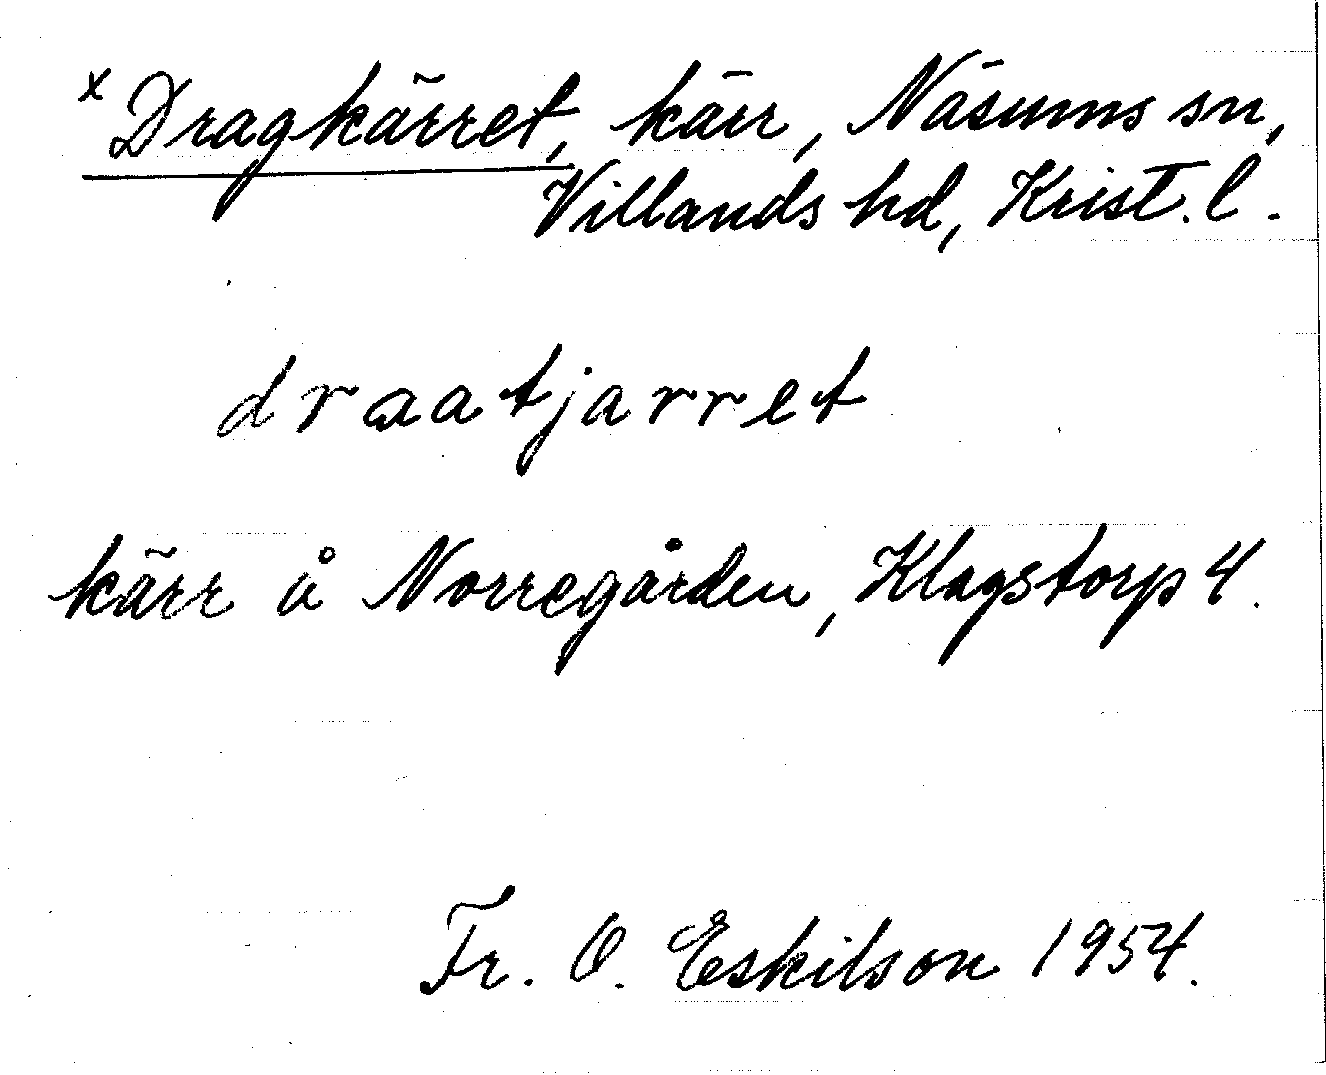 x Dragkärret, kärr, Näsums sn,
Villands hd, Krist. l.
draatjarret
kärr å Norregården, Klagstorp 4.
Fr. O. Eskilson 1954.